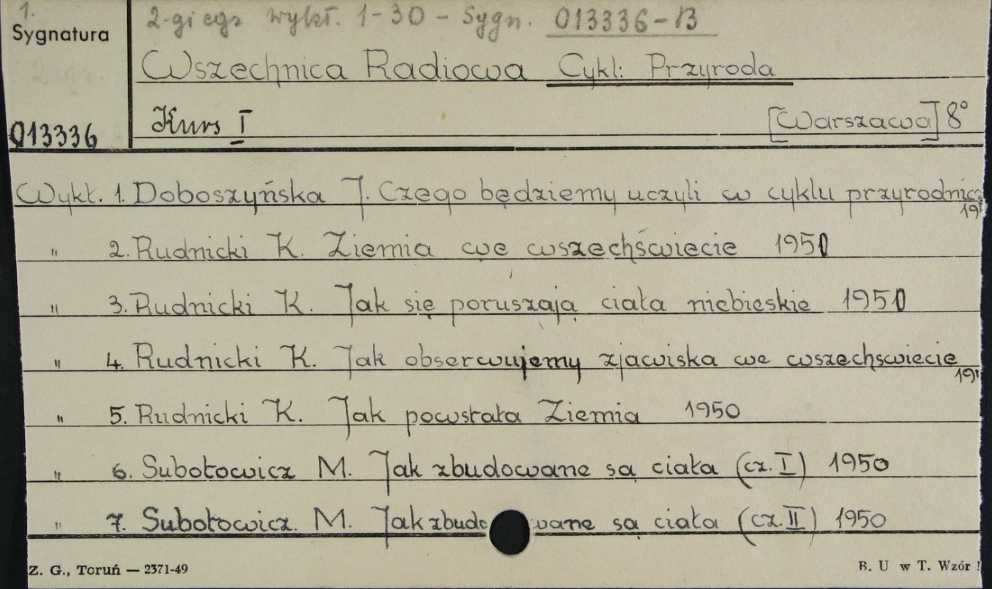 1.
Sygnatura
2-gi egz wykł. 1-30 - Sygn. 013336-B
Wszechnica Radiowa Cykl: Przyroda
013336
Kurs I
[Warszawa] 8°
Wykł. 1. Doboszyńska J. Czego będziemy uczyli w cyklu przyrodnicz
19
" 2. Rudnicki K. Ziemia we wszechświecie 1950
" 3. Rudnicki K. Jak się poruszają ciała niebieskie 1950
" 4. Rudnicki K. Jak obserwujemy zjawiska we wszechświecie
19
" 5. Rudnicki K. Jak powstała Ziemia 1950
" 6. Subotowicz M. Jak zbudowane są ciała (cz. I) 1950
" 7. Subotowicz. M. Jak zbudowane są ciała (cz. II) 1950
Z. G., Toruń — 2371-49
B. U w T. Wzór